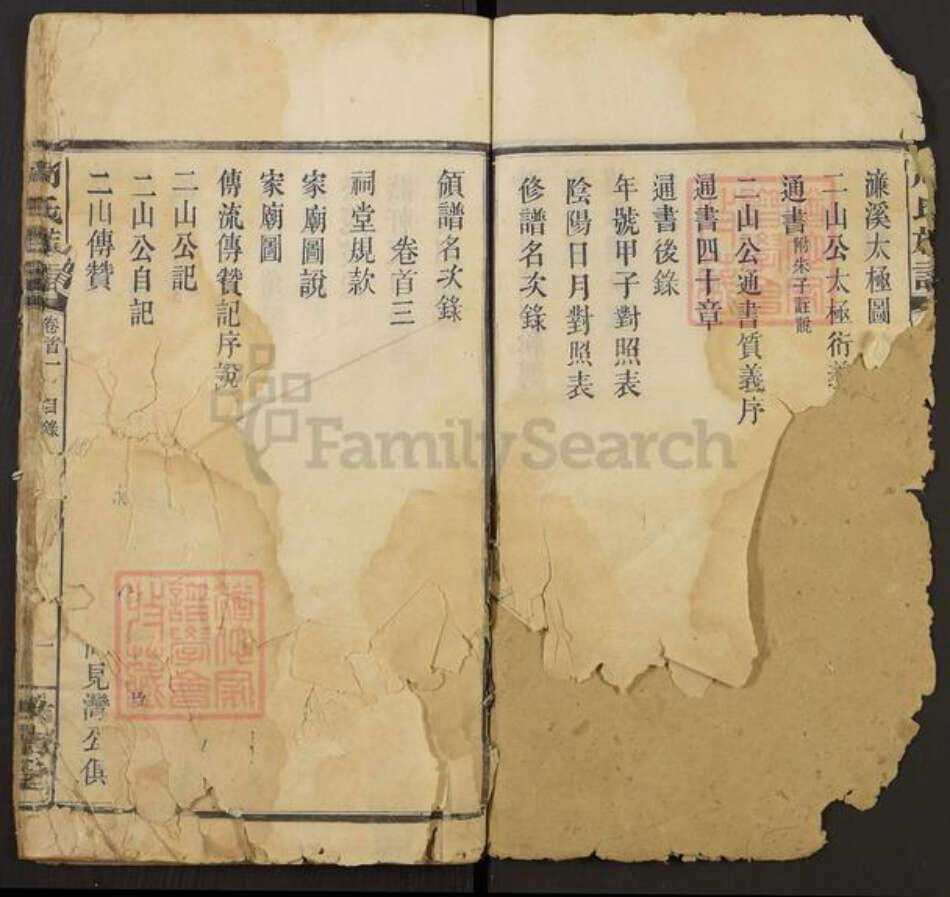 周氏族譜
濂溪太極圖
二山公太極衍義
通書附朱子註說
二山公通書質義序
通書四十章
通書後錄
年號甲子對照表
陰陽日月對照表
修譜名次錄
領譜名次錄
卷首三
祠堂規款
家廟圖說
家廟圖
傳流傳贊記序說
二山公記
二山公自記
二山傳贊
見灣公俱
周氏族譜
卷首一
目錄
一
FamilySearch